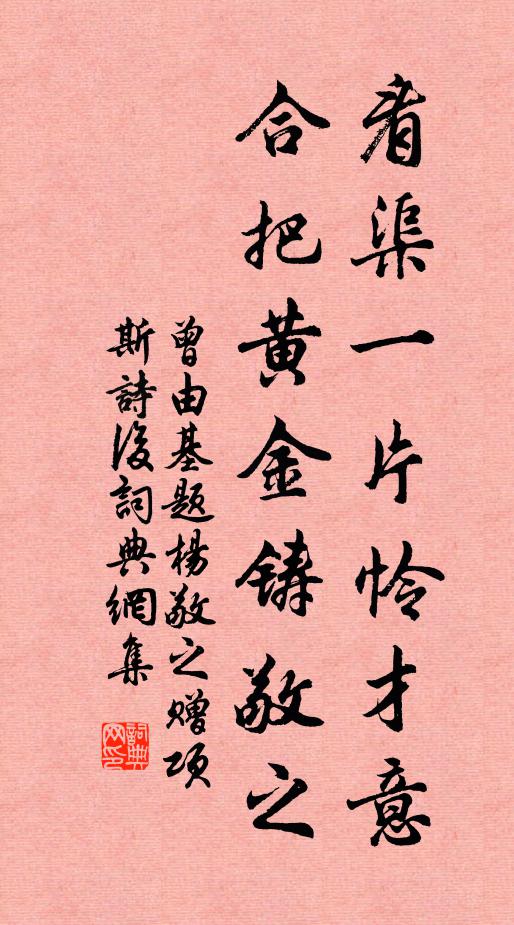 看渠一片怜才意
合把黄金铸敬之
曾由基题杨敬之赠项
斯詩後詞典網集
詞典
网印